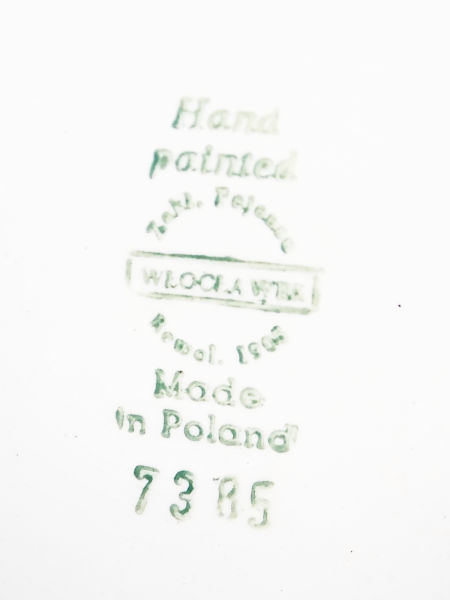 Hand
painted
Zakł. Fajansu
WŁOCŁAWEK
Made
in Poland
7385